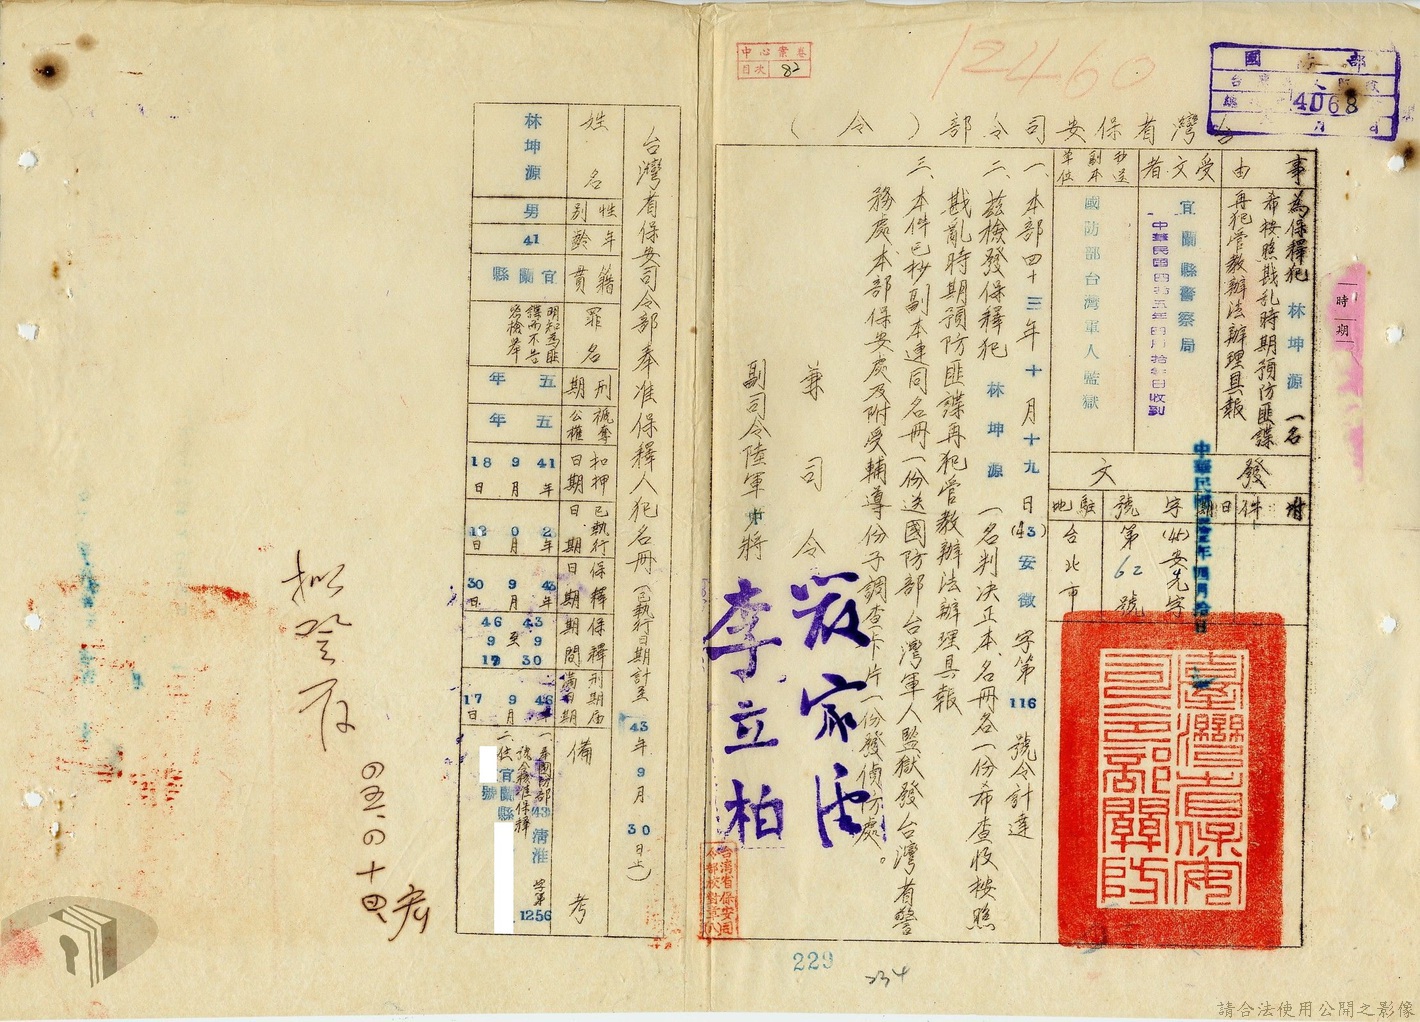 中心案卷
目次 82
12460
國 部
4068
台灣省保安司令部（令）
事由
為保釋犯 林坤源 一名
希按照戡乱時期預防匪諜
再犯管教辦法辦理具報
受文者
宜蘭縣警察局
中華民國四五年四月拾 日收到
抄送副本單位
國防部台灣軍人監獄
發文
附件
日期
字號
(45)安先字
第62號
駐地
台北市
時期
一、本部四十三年十月十九日(43)安徵字第116號令計達
二、茲檢發保釋犯 林坤源 一名判决正本、名冊各一份希查收按照
戡亂時期預防匪諜再犯管教辦法辦理具報
三、本件已抄副本連同名冊一份送國防部台灣軍人監獄發台灣省警
務處、本部保安處及附受輔導份子調查卡片一份發偵防處。
兼司令 嚴家淦
副司令陸軍中將 李立柏
229
234
台灣省保安司令部奉准保釋人犯名冊（已執行日期計至43年9月30日止）
姓名 林坤源
性別 男
年齡 41
籍貫 宜蘭縣
罪名 明知為匪諜而不告密檢舉
刑期 五年
褫奪公權 五年
扣押日期 41年9月18日
已執行日期 2年0月12日
保釋日期 43年9月30日
保釋期間 43 9 30至46 9 17
刑期屆滿日期 46年9月17日
備考
一、奉國防部(43)清淮字第1256號令核准保釋
二、住宜蘭縣 號
請合法使用公開之影像